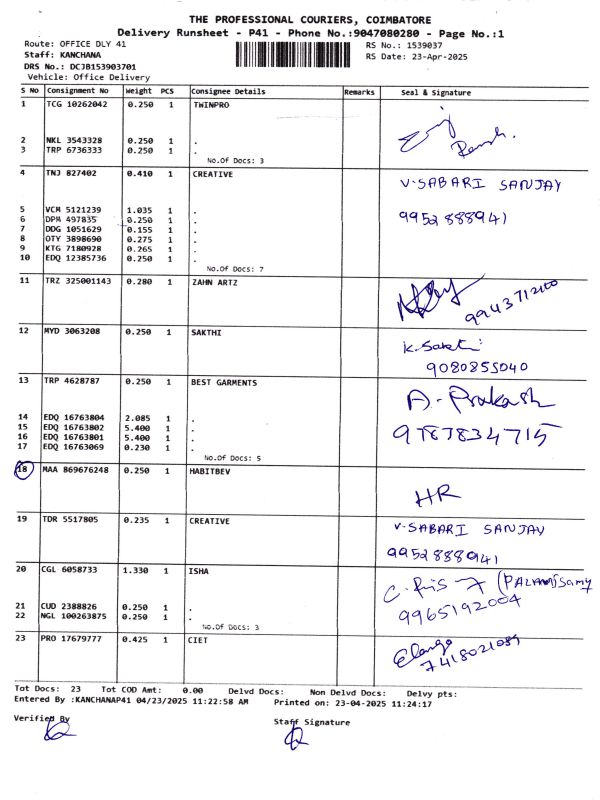 THE PROFESSIONAL COURIERS, COIMBATORE
Delivery Runsheet - P41 - Phone No.:9047080280 - Page No.:1
Route: OFFICE DLY 41 RS No.: 1539037
Staff: KANCHANA RS Date: 23-Apr-2025
DRS No.: DCJB153903701
Vehicle: Office Delivery
S No Consignment No Weight PCS Consignee Details Remarks Seal & Signature
1 TCG 10262042 0.250 1 TWINPRO
2 NKL 3543328 0.250 1 .
3 TRP 6736333 0.250 1 .
No.Of Docs: 3
4 TNJ 827402 0.410 1 CREATIVE V.SABARI SANJAY
5 VCM 5121239 1.035 1 .
6 DPM 497835 0.250 1 . 9952888941
7 DDG 1051629 0.155 1 .
8 OTY 3898690 0.275 1 .
9 KTG 7180928 0.265 1 .
10 EDQ 12385736 0.250 1 .
No.Of Docs: 7
11 TRZ 325001143 0.280 1 ZAHN ARTZ
12 MYD 3063208 0.250 1 SAKTHI K. Sakthi
9080855040
13 TRP 4628787 0.250 1 BEST GARMENTS A. Prakash
14 EDQ 16763804 2.085 1 .
15 EDQ 16763802 5.400 1 . 9787834715
16 EDQ 16763801 5.400 1 .
17 EDQ 16763069 0.230 1 .
No.Of Docs: 5
18 MAA 869676248 0.250 1 HABITBEV HR
19 TDR 5517805 0.235 1 CREATIVE V.SABARI SANJAY
9952888941
20 CGL 6058733 1.330 1 ISHA
9965192004
21 CUD 2388826 0.250 1 .
22 NGL 100263875 0.250 1 .
No.Of Docs: 3
23 PRO 17679777 0.425 1 CIET Elango
Tot Docs: 23 Tot COD Amt: 0.00 Delvd Docs: Non Delvd Docs: Delvy pts:
Entered By :KANCHANAP41 04/23/2025 11:22:58 AM Printed on: 23-04-2025 11:24:17
Verified By Staff Signature